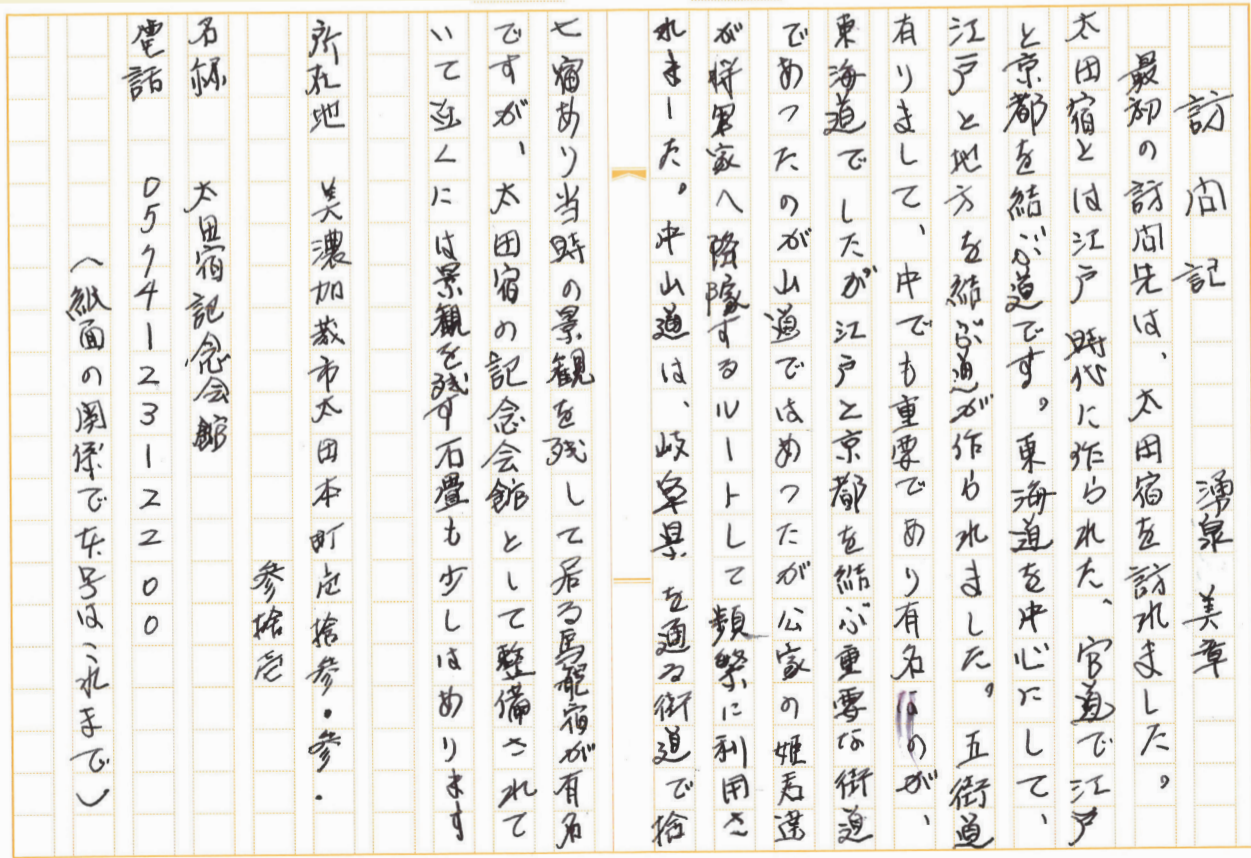 訪問記
湧泉 美章
最初の訪問先は、太田宿を訪れました。
太田宿とは江戸時代に作られた、官道で江戸
と京都を結ぶ道です。東海道を中心にして、
江戸と地方を結ぶ道が作られました。五街道
有りまして、中でも重要であり有名なのが、
東海道でしたが江戸と京都を結ぶ重要な街道
であったのが山道ではあったが公家の姫君達
が将軍家へ降嫁するルートして頻繁に利用さ
れました。中山道は、岐阜県を通る街道で拾
七宿あり当時の景観を残して居る馬籠宿が有名
ですが、太田宿の記念会館として整備されて
いて近くには景観を残す石畳も少しはあります
所在地 美濃加茂市太田本町壱拾参・参・
参拾壱
名称 太田宿記念会館
電話 0574ー23ー2200
（紙面の関係で本号はこれまで）